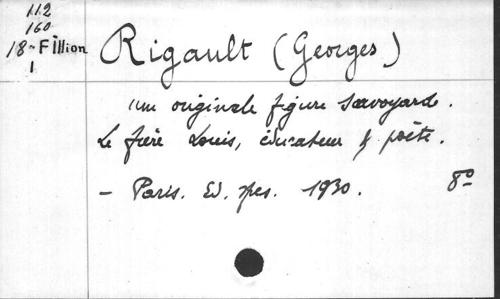 112
160
18-Fillion
1
Rigault (Georges)
Une originale figure savoyarde.
Le frère Louis, éducateur & poète.
- Paris. Ed. spes. 1930. 8°